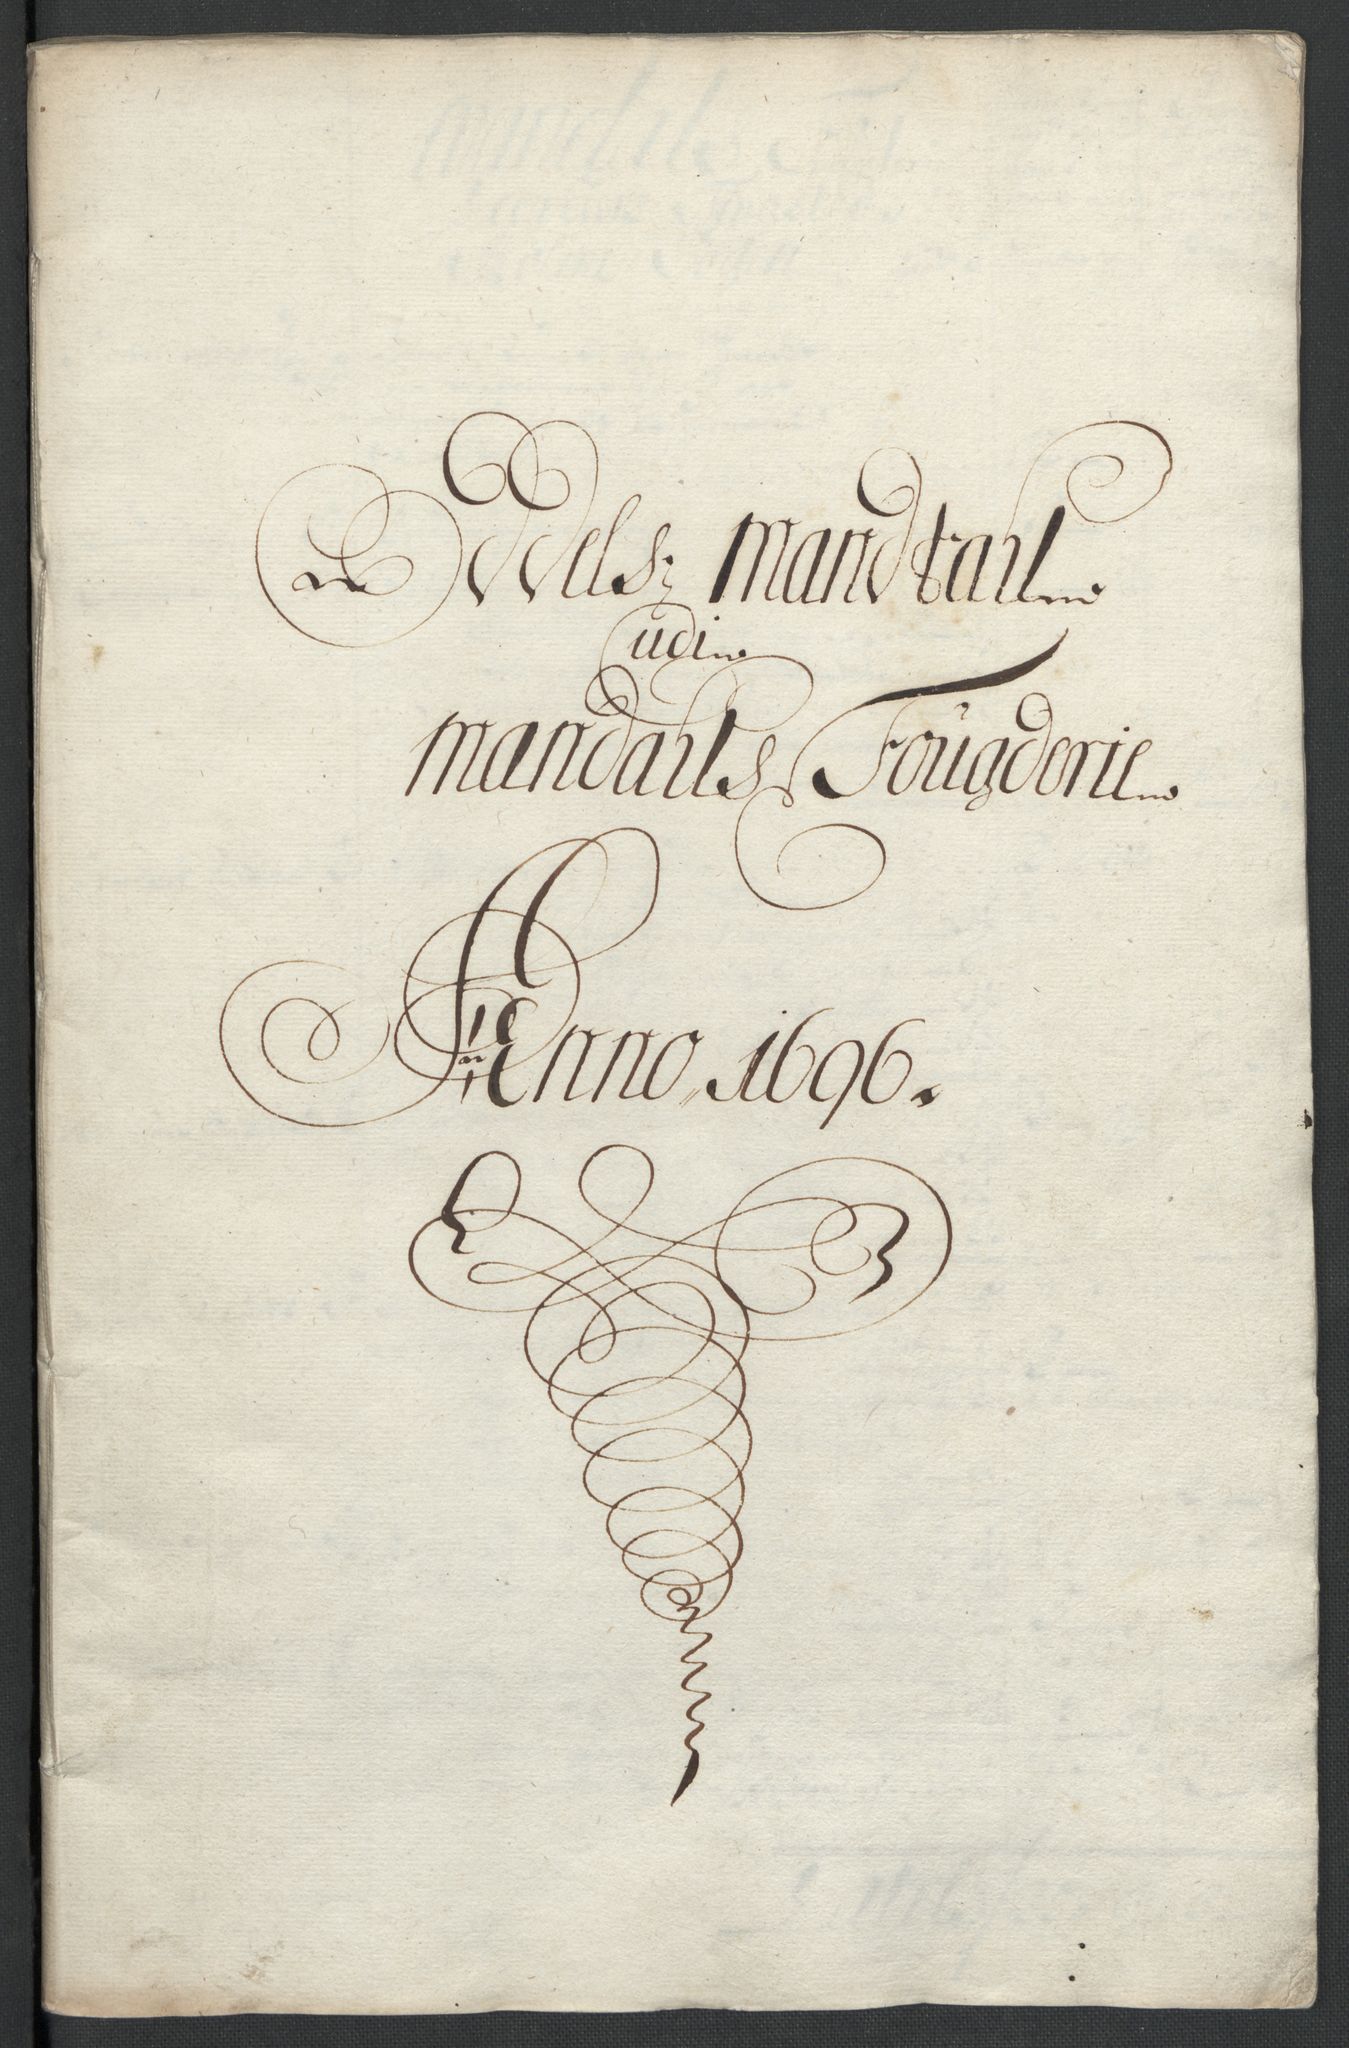 Oddels mandtall
udi
mandahls Fougderie
Anno 1696.